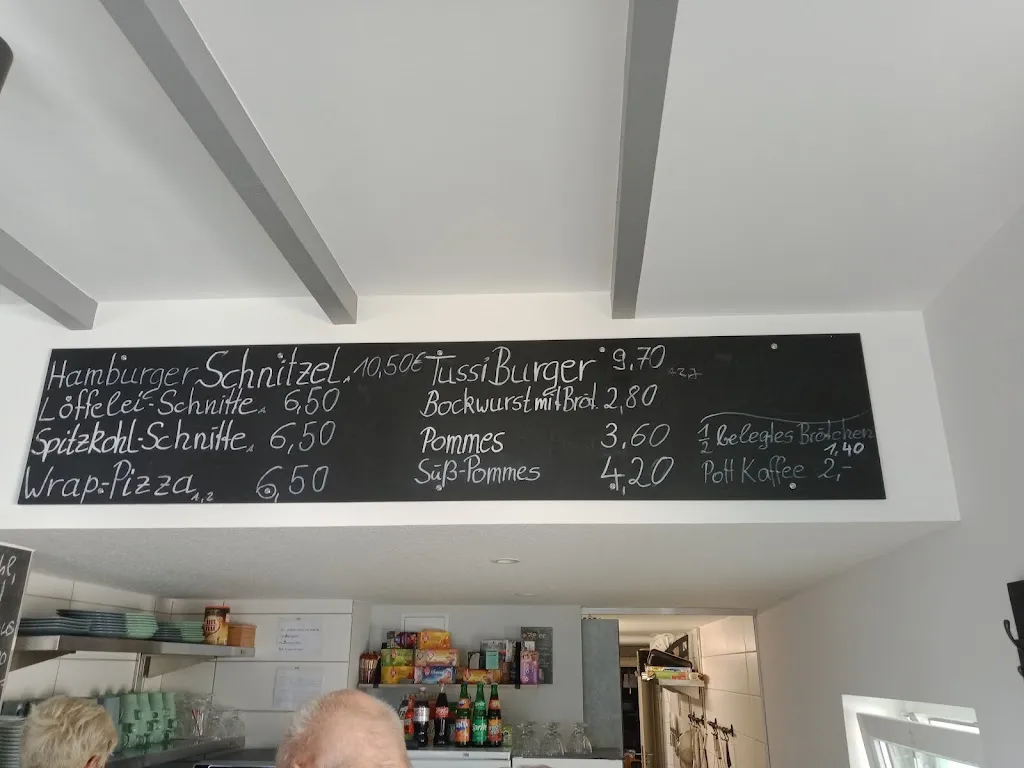 Hamburger Schnitzel 10,50€
Löffelei-Schnitte 6,50
Spitzkohl-Schnitte 6,50
Wrap-Pizza 1,2 6,50
TussiBurger 9,70
Bockwurst mit Brot 2,80
Pommes 3,60
Süß-Pommes 4,20
1/2 Belegtes Brötchen
1,40
Pott Kaffee 2,-